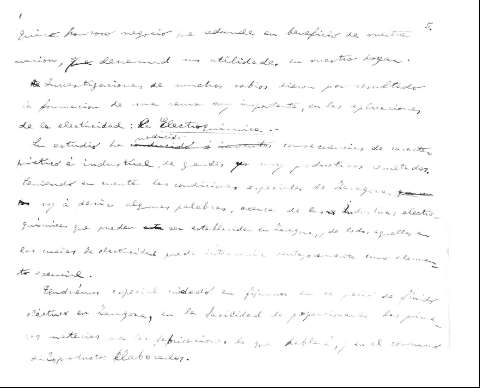 5.
honroso negocio que redunde en beneficio de nuestra
nación, que utilidades en nuestro hogar.
Investigaciones de muchos sabios dieron por resultado
la formacion de una rama muy importante, en las aplicaciones
de la electricidad: la Electroquímica.
Su estudio ha producido consecuencias de
práctico é industrial, de grandes y muy productivos resultados.
Teniendo en cuenta las condiciones especiales de Zaragoza,
voy á decir algunas palabras, acerca de las industrias electro-
químicas que pueden ser establecidas en Zaragoza, de todas aquellas en
las cuales la electricidad puede intervenir como elemen-
to esencial.
Tendremos especial cuidado en fijarnos en el precio de fluido
eléctrico en Zaragoza, en la facilidad de proporcionarse las prime-
ras materias en las fabricaciones de que hablaré, y en el consumo
de los productos elaborados.